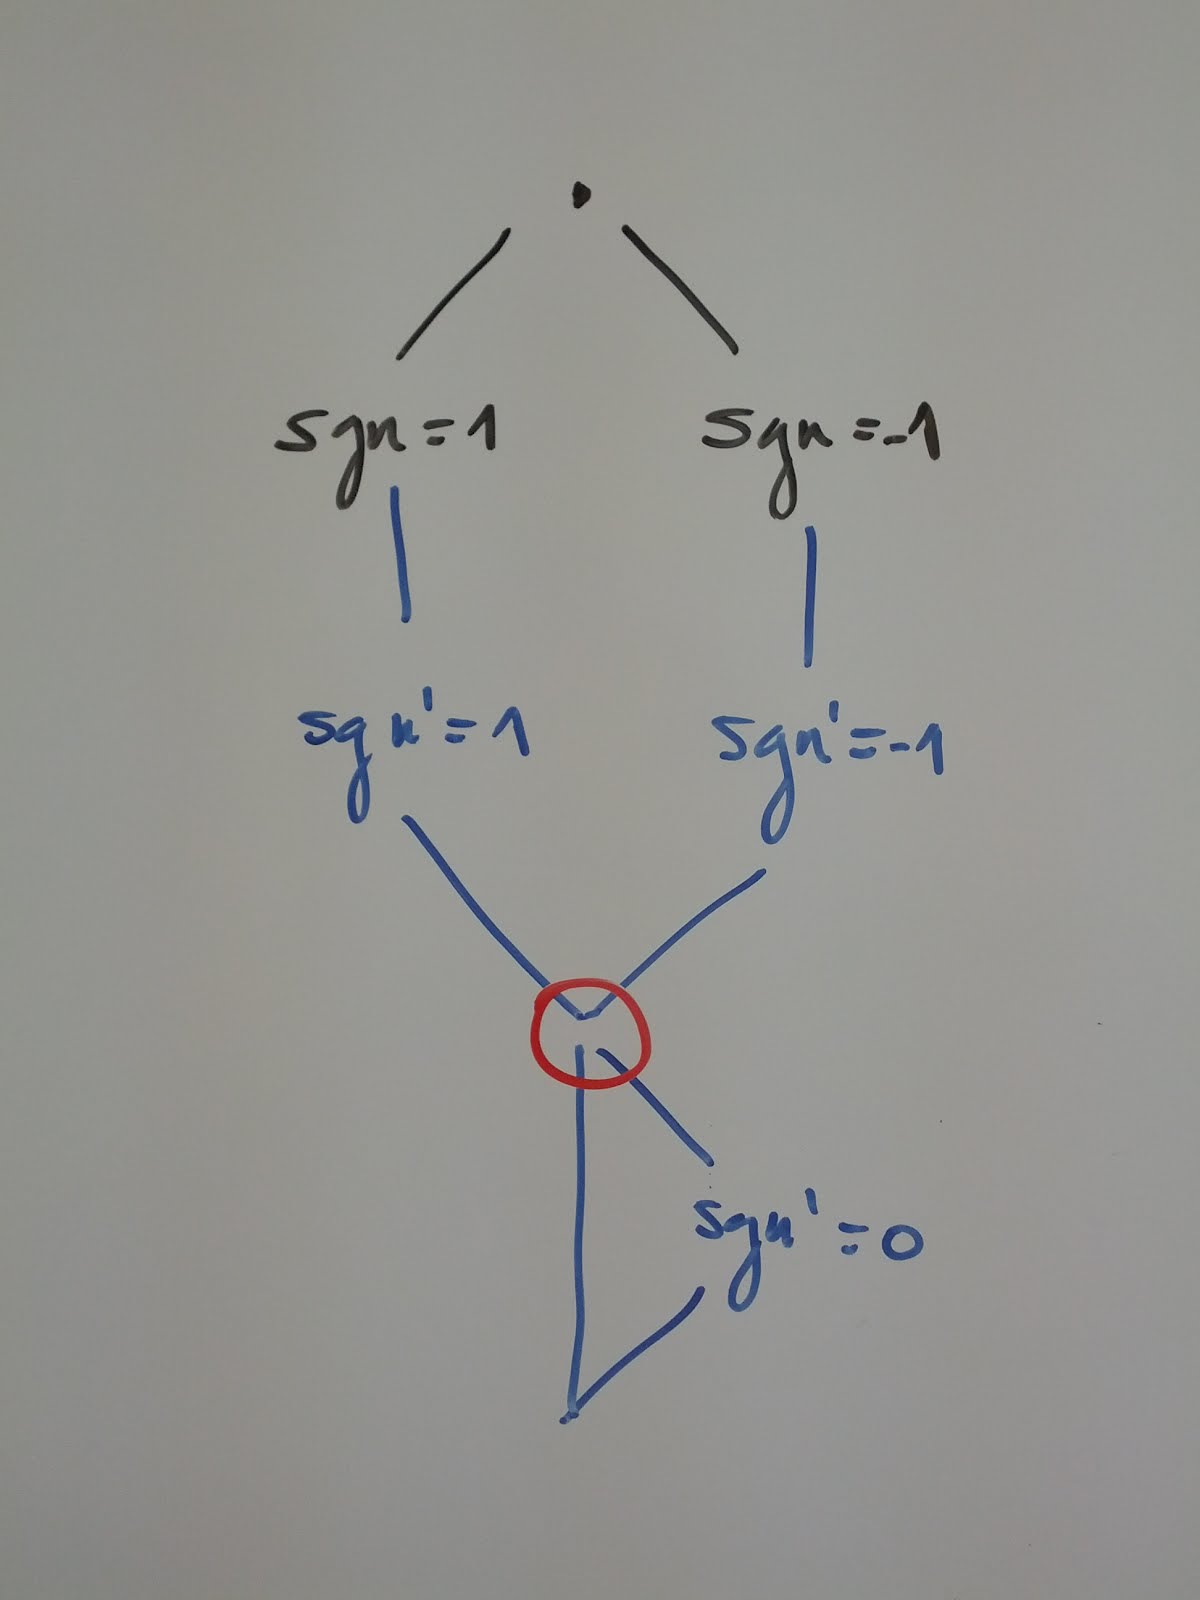 sgn=1 sgn=-1
sgn'=1 sgn'=-1
sgn'=0